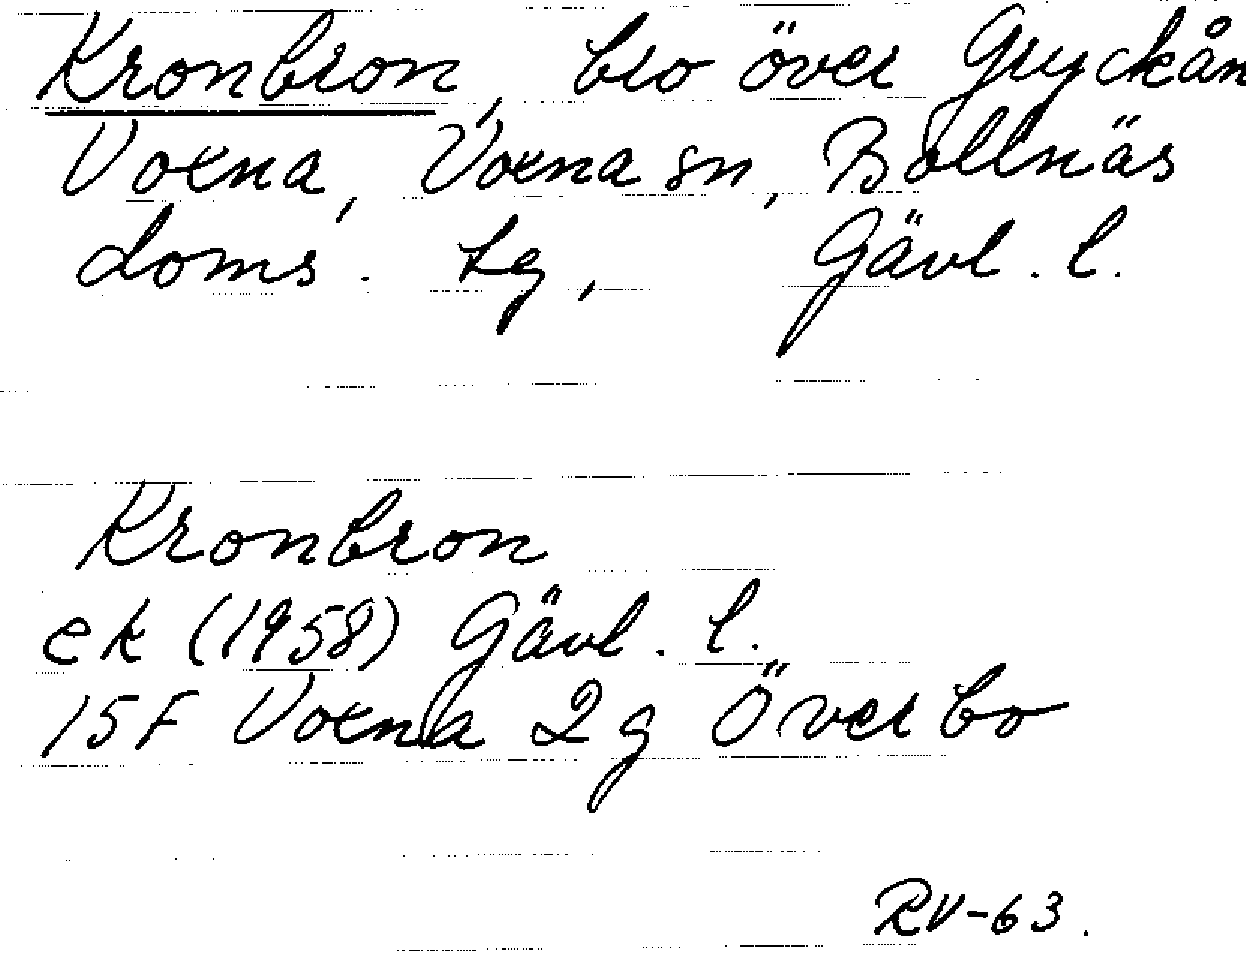 Kronbron, bro över Gryckån
Voxna, Voxna sn, Bollnäs
doms. tg, Gävl. l.
Kronbron
ek (1958) Gävl. l.
15F Voxna 2g Överbo
RV-63.